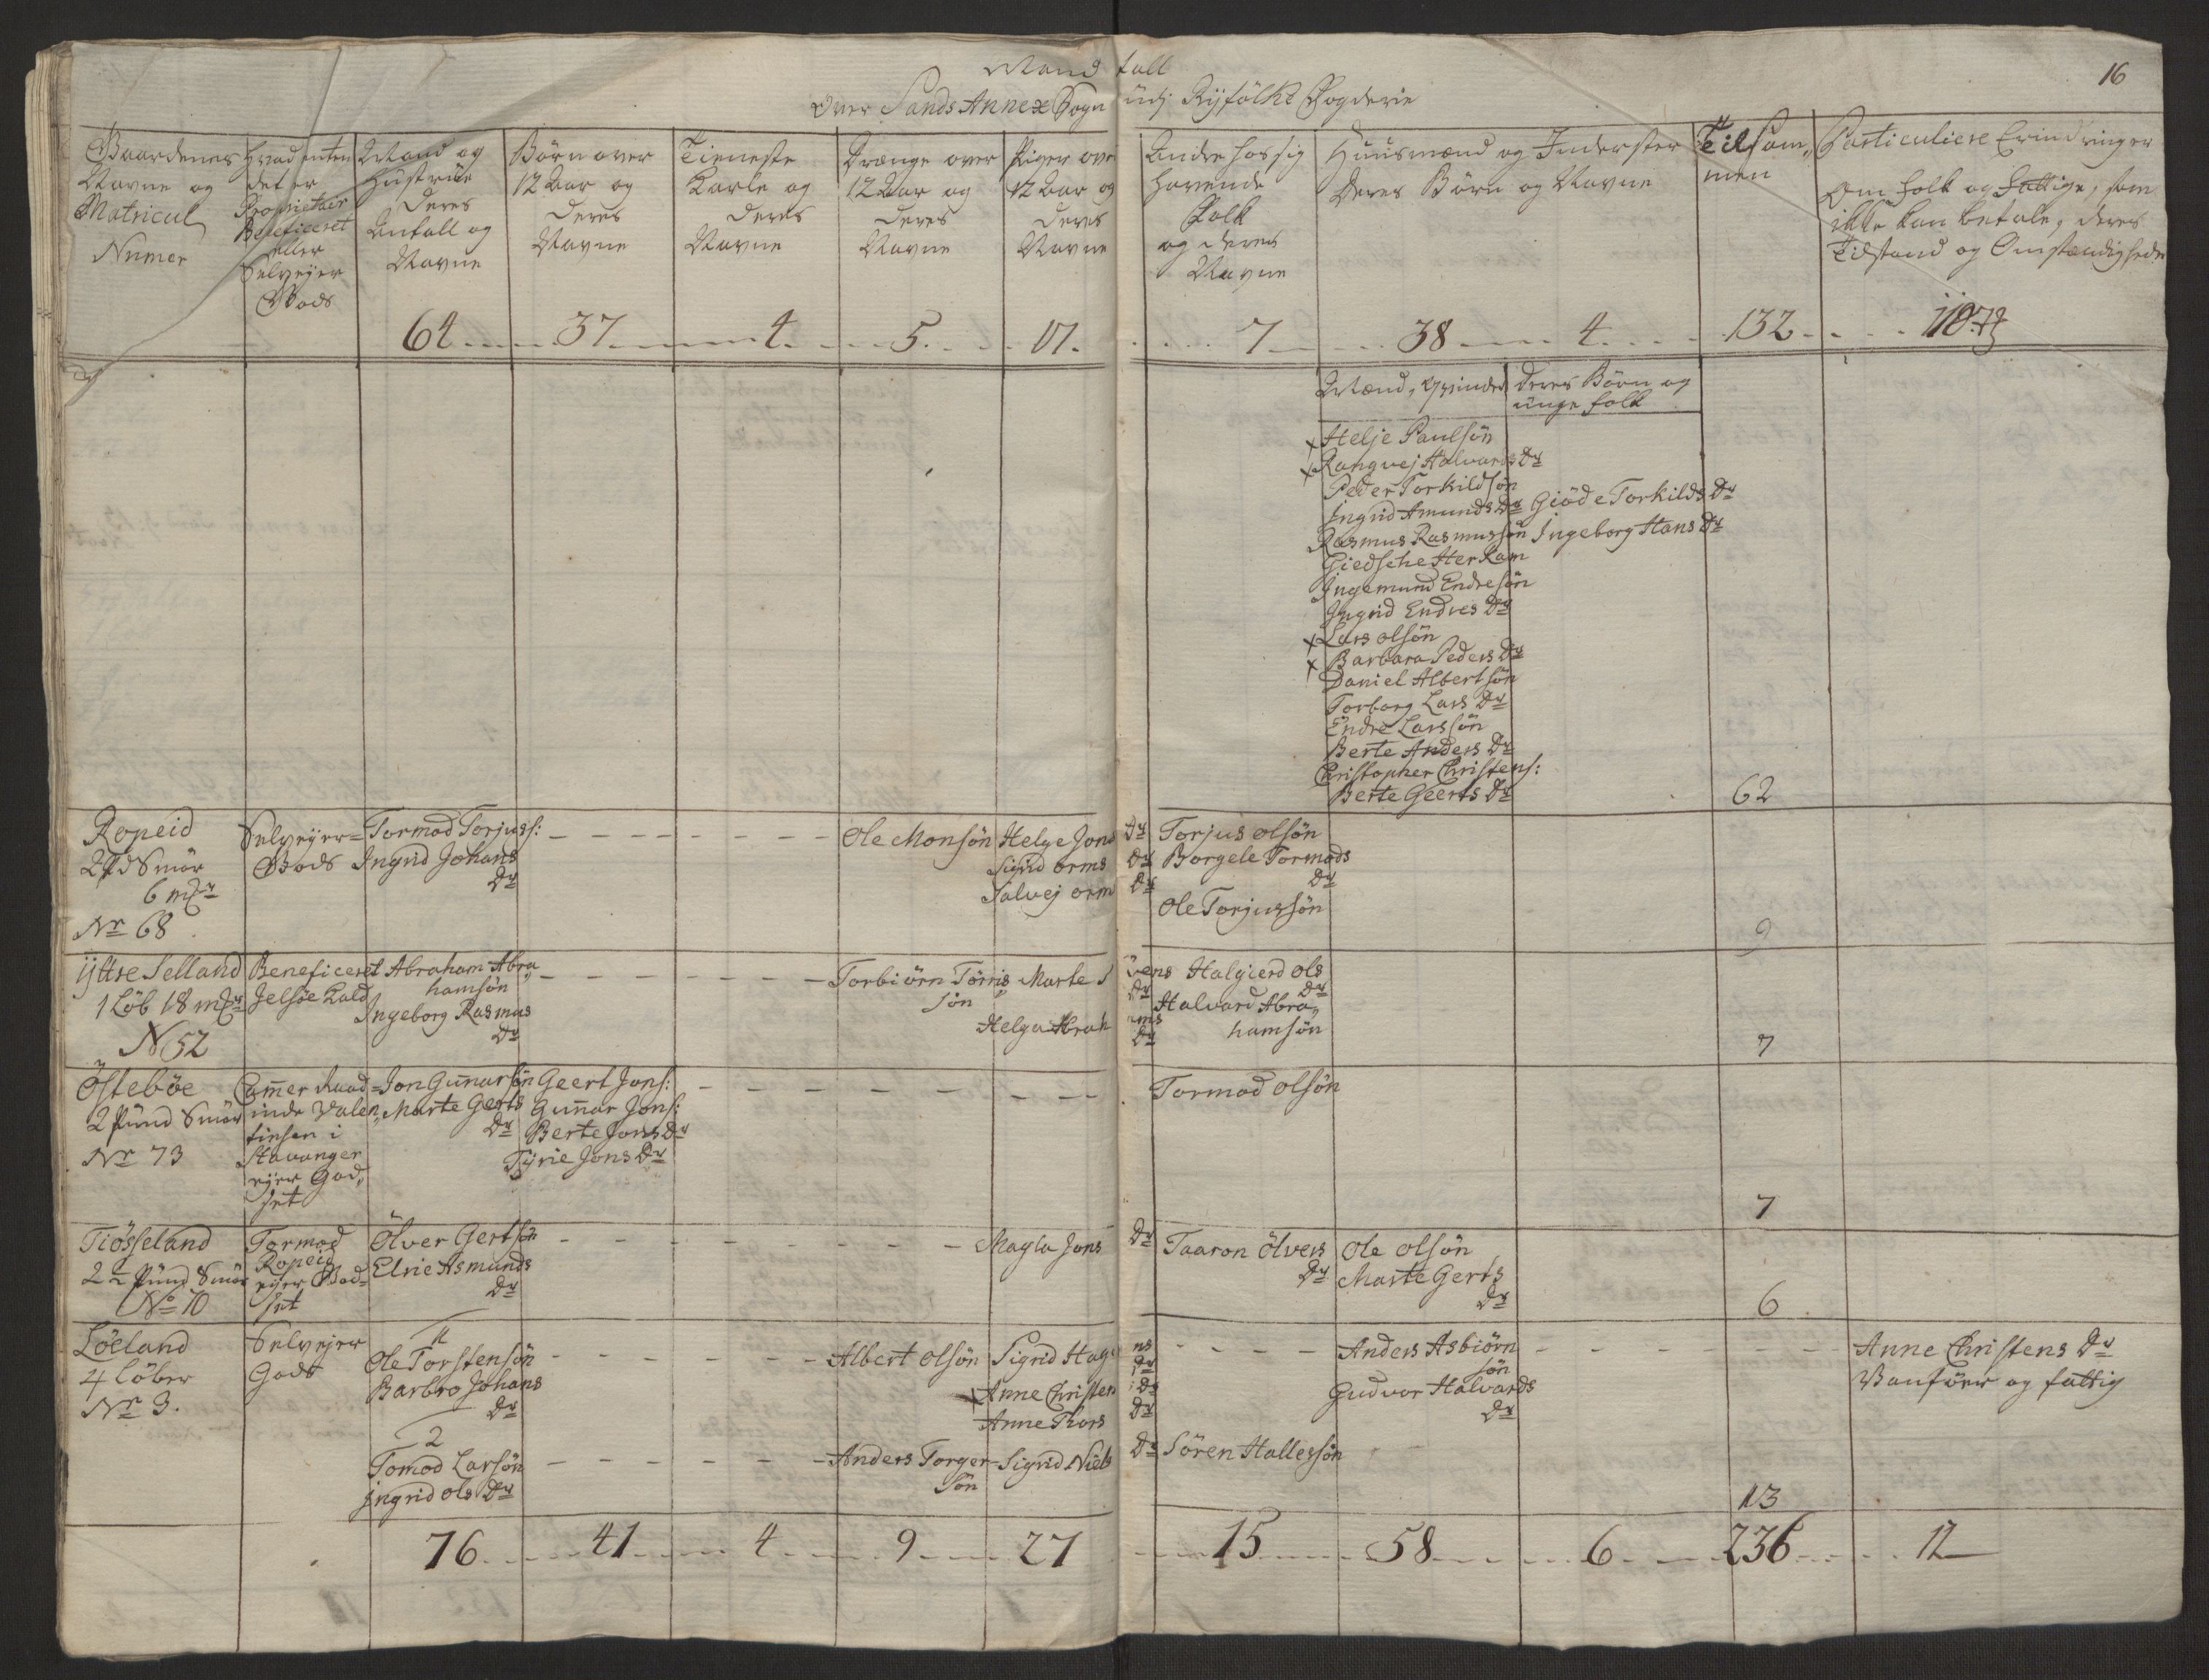 16
Mand tall
Over Sands Annex Sogn udj Ryfölke Fogderie
Gaardenes Navne og Matricul Numer
Hvad enten det er Proprietair Beneficeret eller Selvejer Gods
Mand og Hustrue deres Antall og Navne
Börn over 12 Aar og deres Navne
Tieneste Karle og deres Navne
Drænge over 12 Aar og deres Navne
Piger over 12 Aar og deres Navne
Andre hos sig havende Folk og deres Navne
Huusmænd og Inderster deres Börn og Navne
Tilsammen
Particuliere Erindringer om folk og fattige, som ikke kan betale, deres Tilstand og Omstændigheder
64 37 4 5 17 7 38 4 132
Mænd, Qvinder
deres Börn og unge folk
x Helje Paulsön
x Rangvej Halvards Dr
Peder Torkildsön
Ingrid Amunds Dr Giöde Torkilds Dr
Rasmus Rasmussön Ingeborg Hans Dr
Giedsche Herkam
Ingemund Endresön
Ingrid Endres Dr
x Lars olsön
x Barbara Peders Dr
Daniel Albertsön
Torborg Lars Dr
Endre Larssön
Berte Anders Dr
Christopher Christens:
Berte Geerts Dr
62
Ropeid
2 pd Smör
6 mkr
Nr 68
Selvejer=
Gods
Tormod Torjuss:
Ingrid Johans
Dr
Ole Monsön
Helge Jons Dr
Sigrid orms Dr
Salvej orm Dr
Torjus olsön
Borgele Tormods
Dr
Ole Torjussön
9
ÿttre Selland
1 Löb 18 mkr
N 52
Beneficeret
Jelsöe Kald
Abraham Abra
hamsön
Ingeborg Rasmus
Dr
Torbiörn Törris
sön
Marte Svens
Dr
Helga Abrahams
Dr
Halgierd ols
Dr
Halvard Abra
hamsön
7
Östeböe
2 Pund Smör
Nr 73
Cammer Raad=
inde Valen
tinsen i
Stavanger
ejer God
set
Jon Gunarsön
Marte Gerts
Dr
Geert Jons:
Gunnar Jons:
Berte Jons Dr
Tÿrie Jons Dr
Tormod olsön
7
Tiösseland
2 1/2 Pund Smör
No 10
Tormod
Ropeid
ejer God=
set
Ölver Gertsön
Elsie Asmunds
Dr
Magla Jons Dr
Taaron Ölvers
Dr
Ole olsön
Marte Gerts
Dr
6
Löeland
4 löber
Nr 3.
Selvejer
Gods
1
Ole Torstensön
Barbro Johans
Dr
Albert olsön
Sigrid Hagens
Dr
x Anne Christens Dr
Anne Thors Dr
Anders Asbiörn
sön
Gudvor Halvards
Dr
Anne Christens Dr
Vanför og fattig
2
Tomod Larsön
Ingrid ols Dr
Anders Torger
sön
Sigrid Niels Dr
Sören Hallessön
13
76 41 4 9 27 15 58 6 236 12